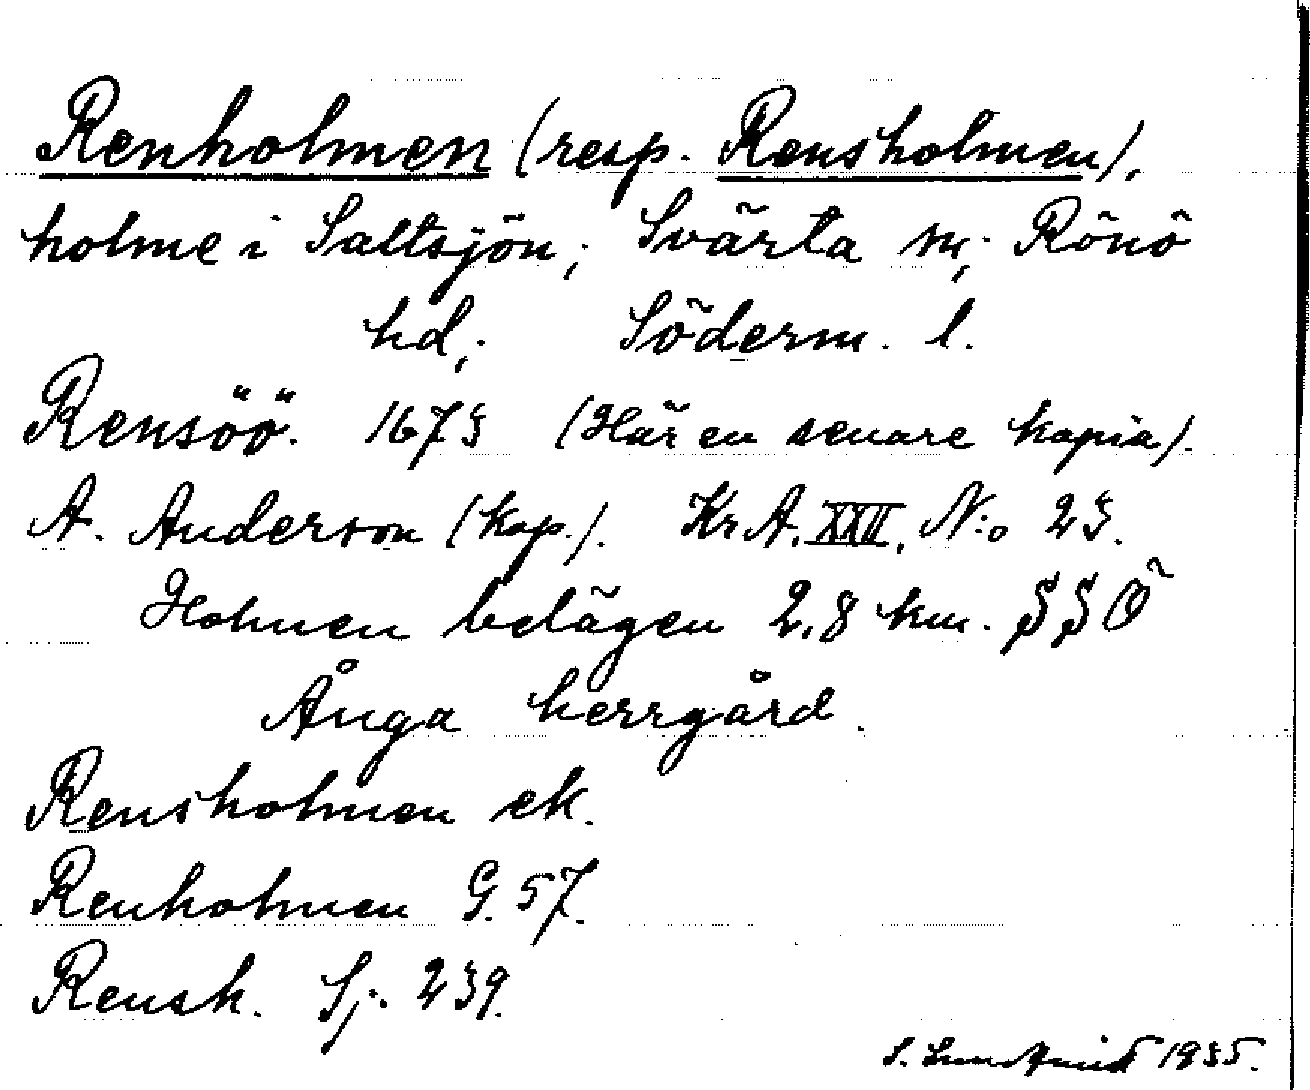 Renholmen (resp. Rensholmen),
holme i Saltsjön; Svärta sn; Rönö
hd; Söderm. l.
Rensöö. 1673 (Här en senare kopia).
A. Anderson (kop.). Kr A. XXII, N:o 23.
Holmen belägen 2,8 km. SSÖ
Ånga herrgård.
Rensholmen ek.
Renholmen G. 57.
Rensh. Sj. 239.
S. Lundqvist 1935.